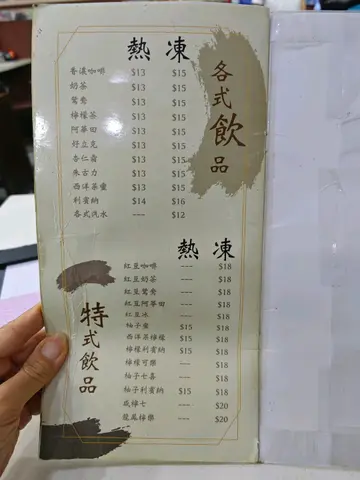 熱 凍
各式飲品
香濃咖啡 $13 $15
奶茶 $13 $15
鴛鴦 $13 $15
檸檬茶 $13 $15
阿華田 $13 $15
好立克 $13 $15
杏仁霜 $13 $15
朱古力 $13 $15
西洋菜蜜 $13 $15
利賓納 $14 $16
各式汽水 --- $12
熱 凍
特式飲品
紅豆咖啡 --- $18
紅豆奶茶 --- $18
紅豆鴛鴦 --- $18
紅豆阿華田 --- $18
紅豆冰 --- $18
柚子蜜 $15 $18
西洋菜檸檬 $15 $18
檸檬利賓納 $15 $18
檸檬可樂 --- $18
柚子七喜 --- $18
柚子利賓納 $15 $18
咸檸七 --- $20
龍鳳檸樂 --- $20